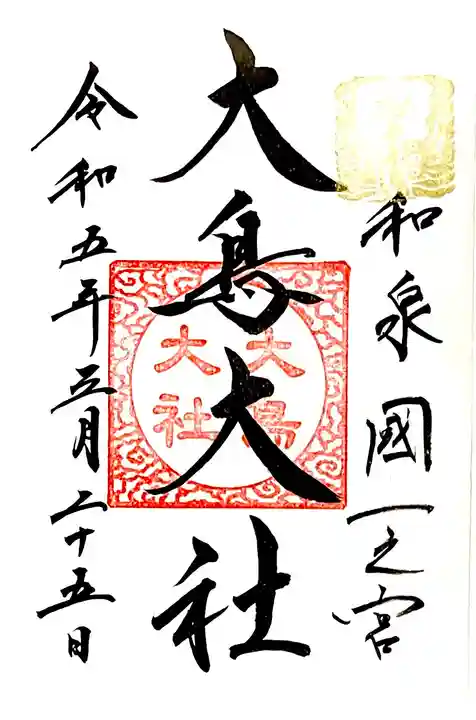 和泉國一之宮
大鳥大社
大鳥大社
令和五年三月二十五日